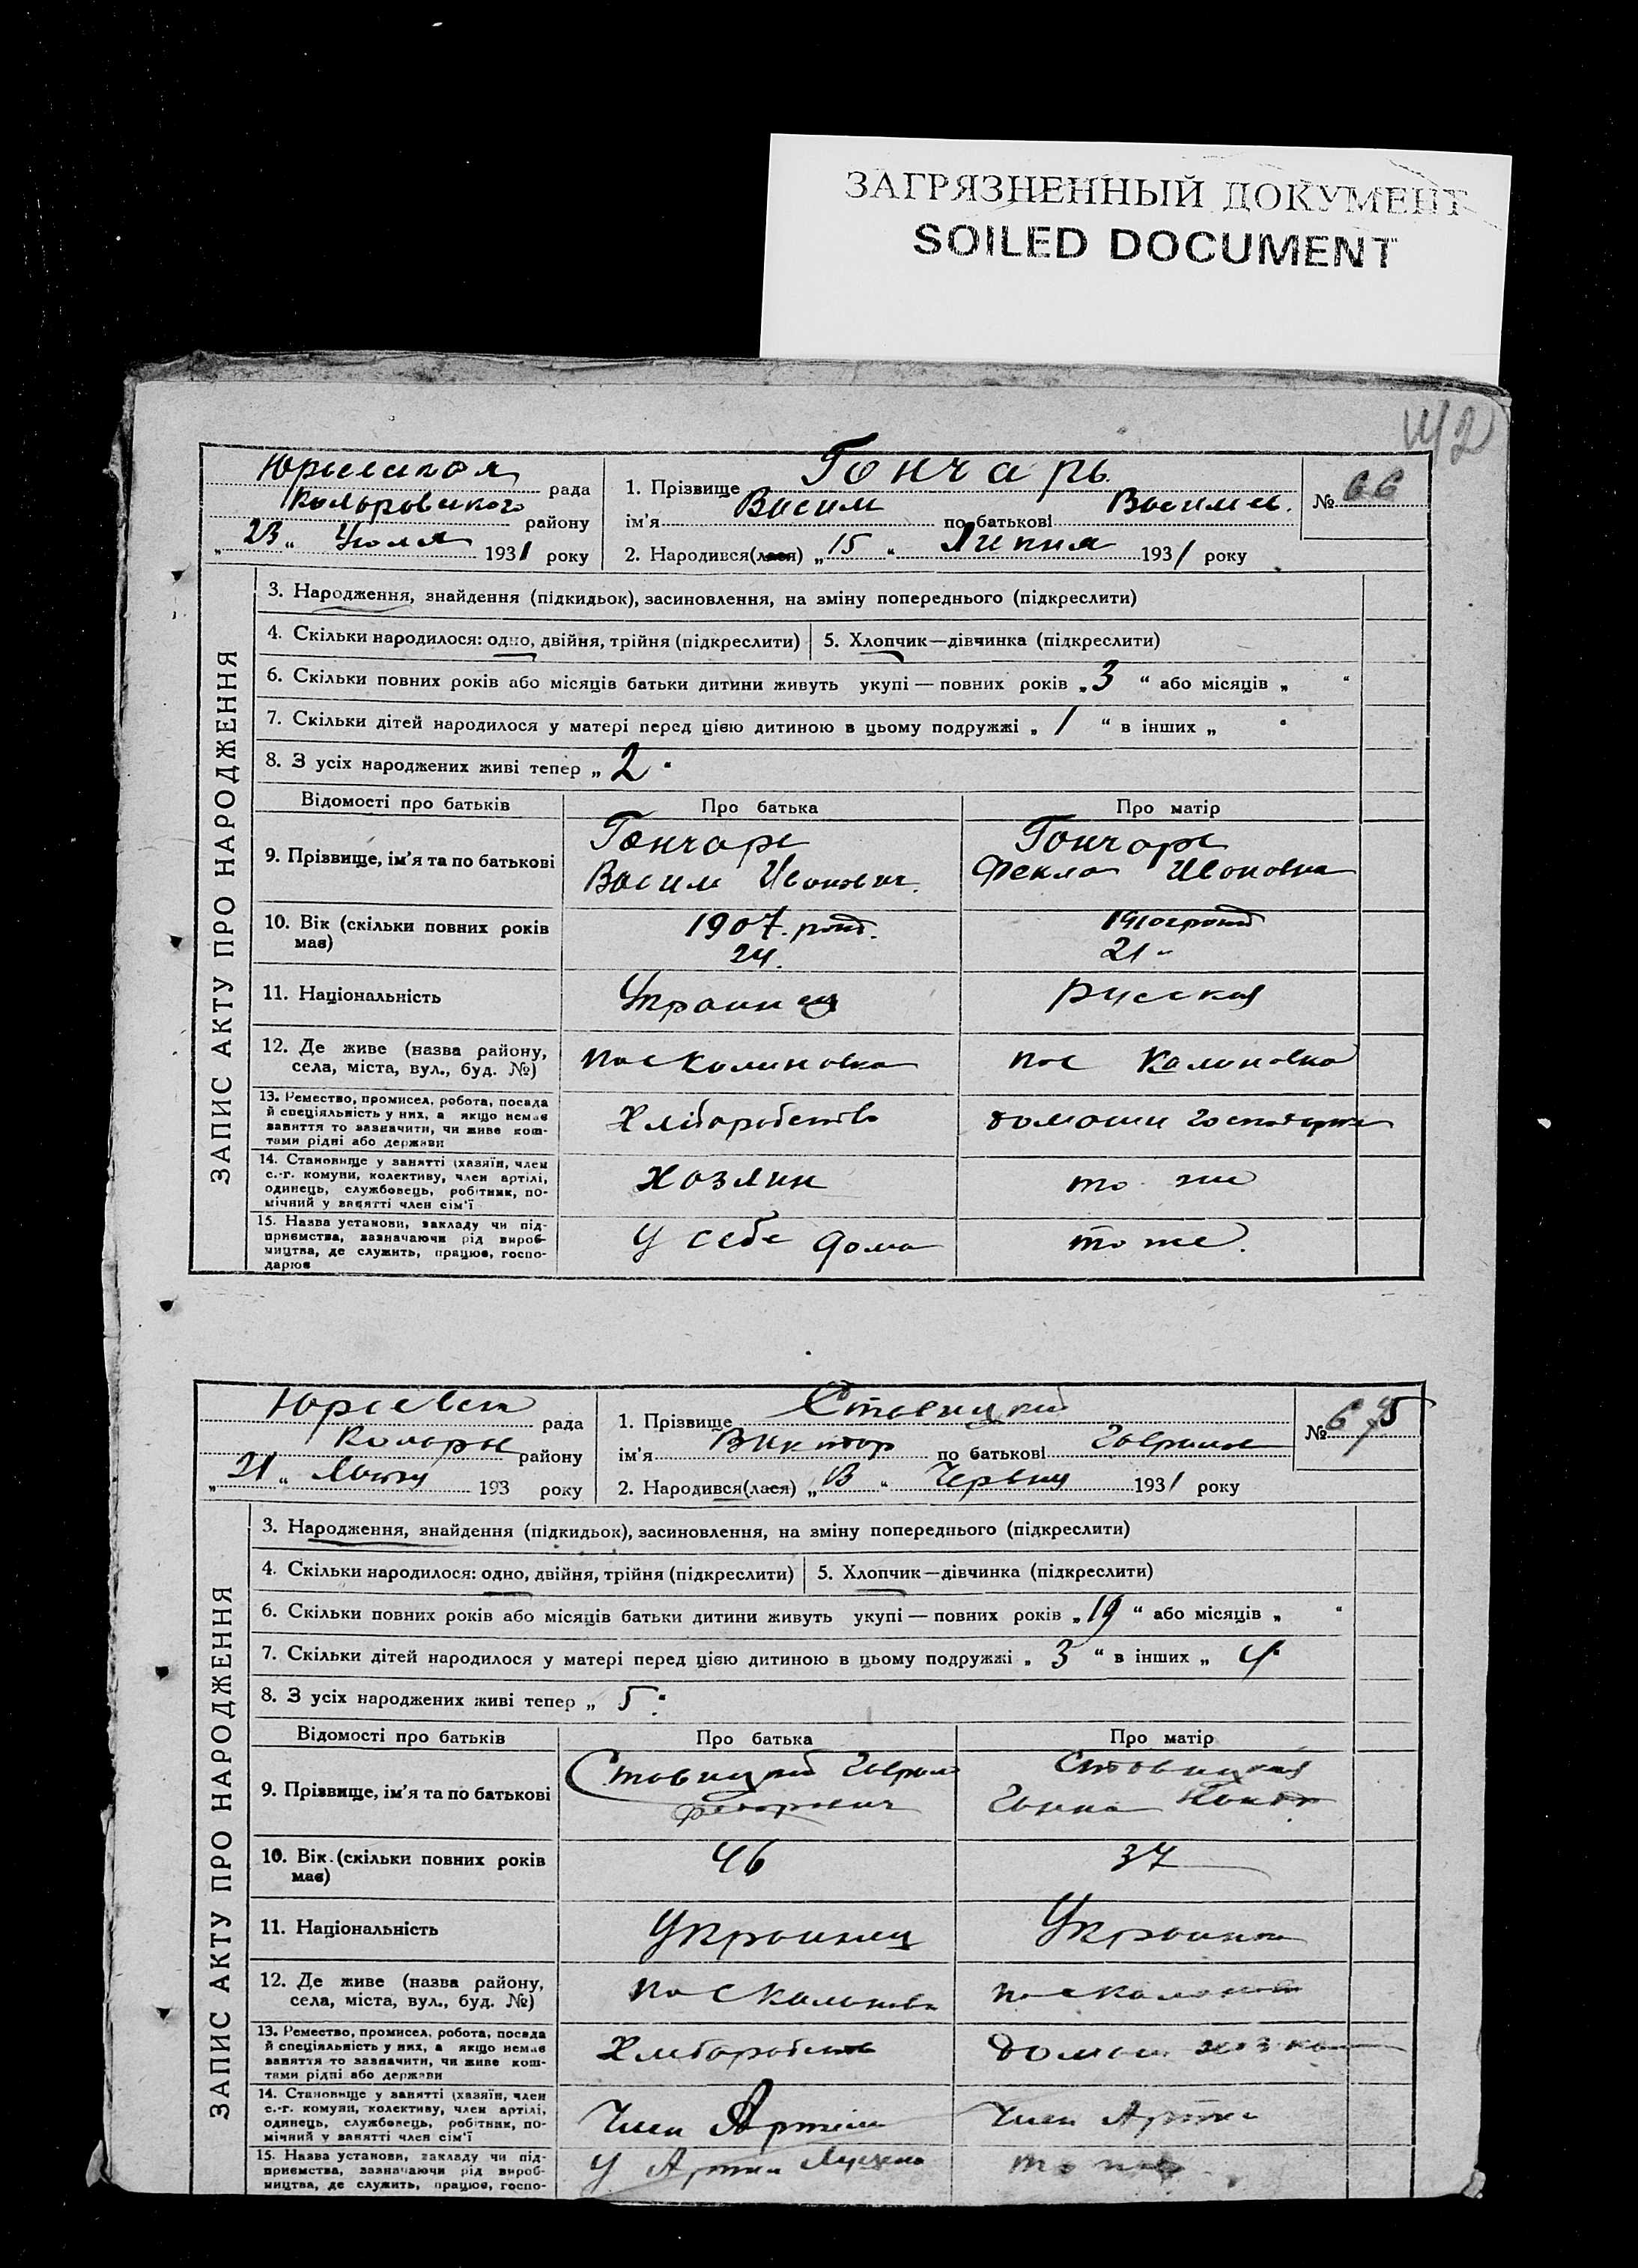 ЗАГРЯЗНЕННЫЙ ДОКУМЕНТ
SOILED DOCUMENT
рада
району
„23“ Июля 1931 року
1. Прізвище Гончарь
ім'я Васили по батькові Василив.
2. Народився(лася) „15“ Липня 1931 року
№ 66
ЗАПИС АКТУ ПРО НАРОДЖЕННЯ
3. Народження, знайдення (підкидьок), засиновлення, на зміну попереднього (підкреслити)
4. Скільки народилося: одно, двійня, трійня (підкреслити)
5. Хлопчик—дівчинка (підкреслити)
6. Скільки повних років або місяців батьки дитини живуть укупі — повних років „3“ або місяців „ “
7. Скільки дітей народилося у матері перед цією дитиною в цьому подружжі „1“ в інших „ “
8. З усіх народжених живі тепер „2“
Відомості про батьків
Про батька
Про матір
9. Прізвище, ім'я та по батькові
Гончарь
Иванович
Гончарь
Фекла Ивановна
10. Вік (скільки повних років має)
1907. рожд.
24.
1910 г рожд
21
11. Національність
Украинец
русская
12. Де живе (назва району, села, міста, вул., буд. №)
пос Калиновка
пос Калиновка
13. Ремество, промисел, робота, посада
й спеціяльність у них, а якщо немає
заняття то зазначити, чи живе кош-
тами рідні або держави
Хліборобство
14. Становище у занятті (хазяїн, член
с.-г. комуни, колективу, член артілі,
одинець, службовець, робітник, по-
мічний у занятті член сім'ї
Хозяин
то же
15. Назва установи, закладу чи під-
приємства, зазначаючи рід вироб-
ництва, де служить, працює, госпо-
дарює
У себе дома
то же.
рада
району
„21“ 193 року
1. Прізвище Ставицкий
ім'я Виктор по батькові
2. Народився(лася) 1931 року
№
ЗАПИС АКТУ ПРО НАРОДЖЕННЯ
3. Народження, знайдення (підкидьок), засиновлення, на зміну попереднього (підкреслити)
4. Скільки народилося: одно, двійня, трійня (підкреслити)
5. Хлопчик—дівчинка (підкреслити)
6. Скільки повних років або місяців батьки дитини живуть укупі — повних років „19“ або місяців „ “
7. Скільки дітей народилося у матері перед цією дитиною в цьому подружжі „3“ в інших „4“
8. З усіх народжених живі тепер „5“
Відомості про батьків
Про батька
Про матір
9. Прізвище, ім'я та по батькові
Ставицкий
Федорович
Ставицкая
Ганна
10. Вік (скільки повних років має)
46
37
11. Національність
Украинец
Украинка
12. Де живе (назва району, села, міста, вул., буд. №)
пос
пос
13. Ремество, промисел, робота, посада
й спеціяльність у них, а якщо немає
заняття то зазначити, чи живе кош-
тами рідні або держави
14. Становище у занятті (хазяїн, член
с.-г. комуни, колективу, член артілі,
одинець, службовець, робітник, по-
мічний у занятті член сім'ї
Член Артели
Член
15. Назва установи, закладу чи під-
приємства, зазначаючи рід вироб-
ництва, де служить, працює, госпо-
У